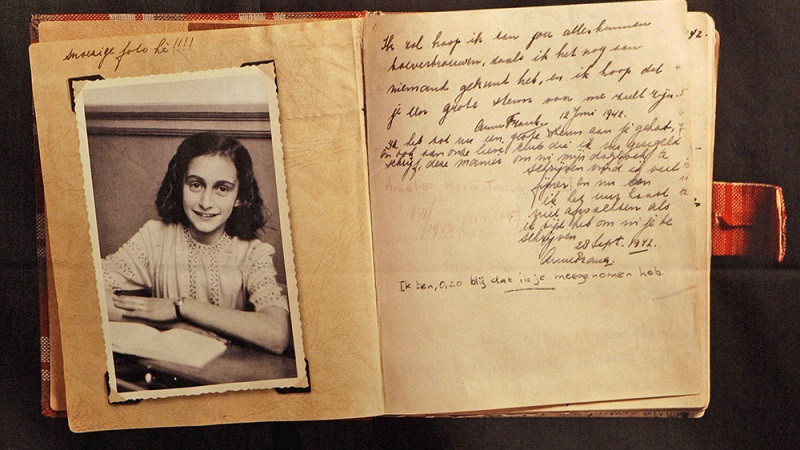 snoezige foto hè!!!!
Ik zal hoop ik aan jou alles kunnen
toevertrouwen, zoals ik het nog aan
niemand gekund heb, en ik hoop dat
je een grote steun voor me zult zijn.
Anne Frank. 12 Juni 1942.
Ik heb tot nu een grote steun aan je gehad,
en ook aan onze lieve club die ik nu geregeld
schrijf, deze manier om in mijn dagboek te
schrijven vind ik veel
fijner en nu kan
ik het uur haast
niet afwachten als
ik tijd heb om in je te
schrijven.
28 Sept. 1942.
Anne Frank.
Ik ben, o, zo blij dat ik je meegenomen heb.
42.